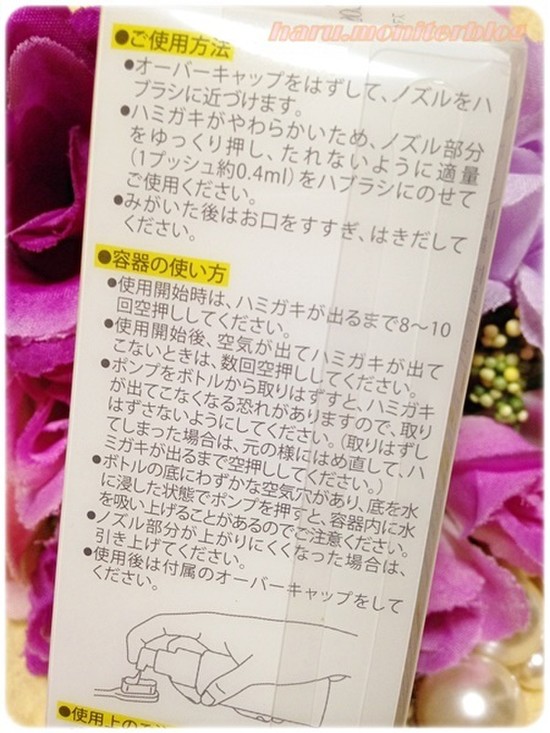 haru.moniterblog
●ご使用方法
●オーバーキャップをはずして、ノズルをハ
ブラシに近づけます。
●ハミガキがやわらかいため、ノズル部分
をゆっくり押し、たれないように適量
(1プッシュ約0.4ml)をハブラシにのせて
ご使用ください。
●みがいた後はお口をすすぎ、はきだして
ください。
●容器の使い方
●使用開始時は、ハミガキが出るまで8～10
回空押ししてください。
●使用開始後、空気が出てハミガキが出て
こないときは、数回空押ししてください。
●ポンプをボトルから取りはずすと、ハミガキ
が出てこなくなる恐れがありますので、取り
はずさないようにしてください。(取りはずし
てしまった場合は、元の様にはめ直して、ハ
ミガキが出るまで空押ししてください。)
●ボトルの底にわずかな空気穴があり、底を水
に浸した状態でポンプを押すと、容器内に水
を吸い上げることがあるのでご注意ください。
●ノズル部分が上がりにくくなった場合は、
引き上げてください。
●使用後は付属のオーバーキャップをして
ください。
●使用上のご注